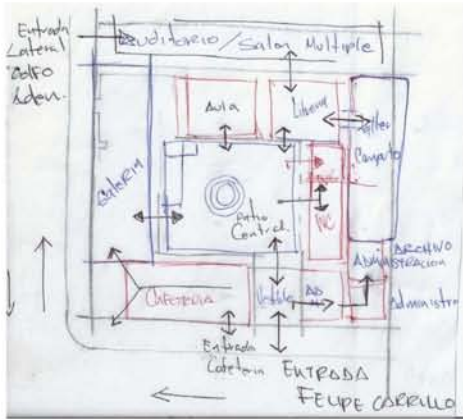 Entrada
Lateral
Golfo
Aden.
Auditorio/Salon Multiple
Aula
Libreria
Taller
Comparto
Galeria
Patio
Central.
WC
ARCHIVO
ADMINISTRACION
CAFETERIA
Vestibulo
AD
Administra
Entrada
Cafeteria
ENTRADA
FELIPE CARRILLO